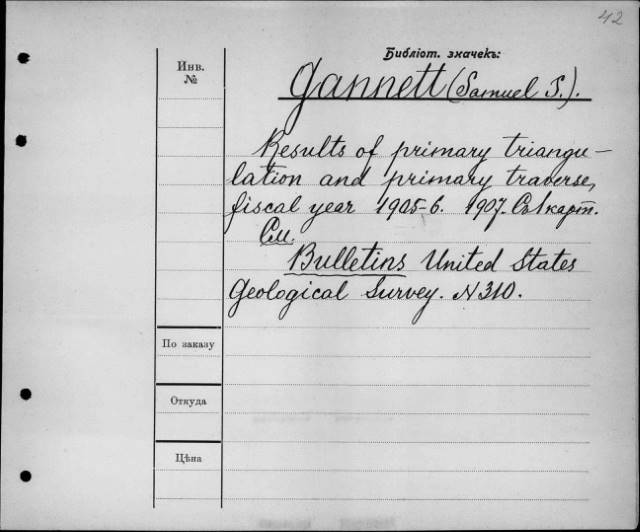 42
Библіот. значекъ:
Инв.
№
Gannett (Samuel S.).
Results of primary triangu-
lation and primary traverse,
fiscal year 1905-6. 1907. Съ 1 карт.
См.
Bulletins United States
Geological Survey. N 310.
По заказу
Откуда
Цѣна